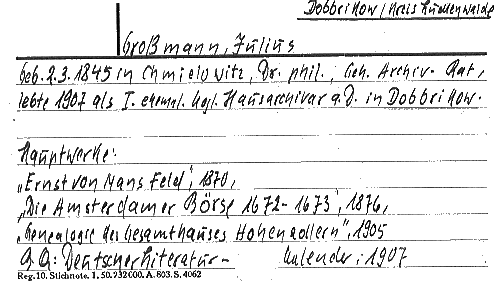 Dobbrikow / Kreis Luckenwalde
Großmann, Julius
geb. 2.3. 1845 in Chmielowitz, Dr. phil., Geh. Archiv-Rat,
lebte 1907 als I. ehemal. kgl. Hausarchivar a.D. in Dobbrikow.
Hauptwerke:
„Ernst von Mansfeld", 1870,
„Die Amsterdamer Börse 1672-1673", 1876,
„Genealogie des Gesamthauses Hohenzollern", 1905
Q.Q: Deutscher Literatur- Kalender: 1907
Reg. 10. Stichnote. 1, 50. 732 000. A. 803. S. 4062